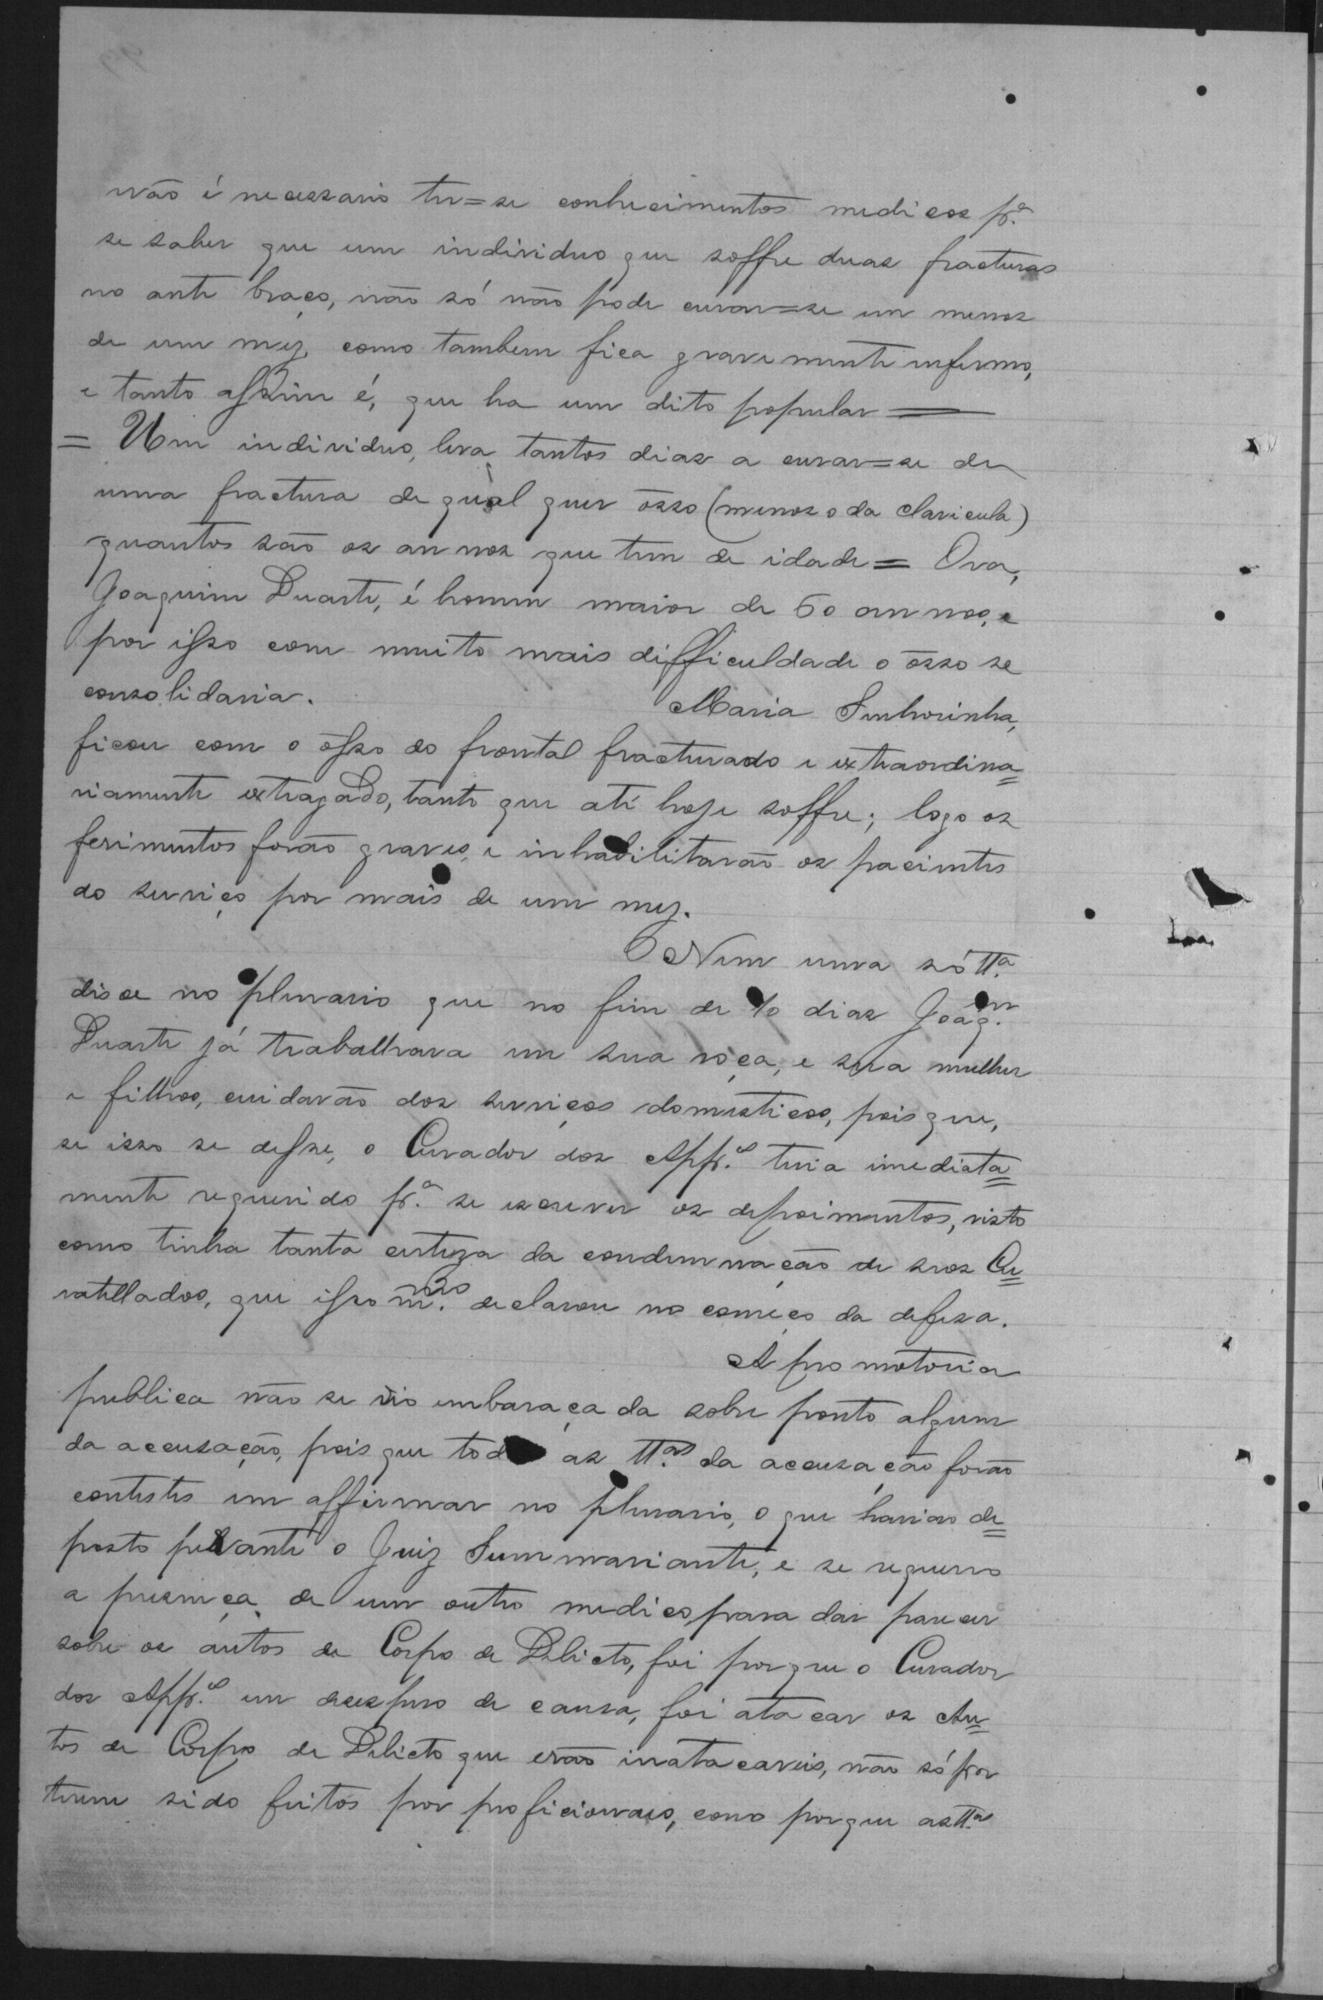 não é necessario ter=se conhecimentos medicos pr.ª
se saber que um individuo que soffre duas fracturas
no ante braço, não só não pode curar=se em menos
de um mez, como tambem fica gravemente enfermo,
e tanto assim é, que ha um dito popular =
= Um individuo, leva tantos dias a curar=se de
uma fractura de qual quer ósso (menos o da clavicula)
quantos são os annos que tem de idade = Ora,
Joaquim Duarte, é homem maior de 50 annos, e
por isso com muito mais difficuldade o ósso se
consolidaria. Maria Senhorinha,
ficou com o ósso do frontal fracturado e extraordina=
riamente extragado, tanto que até hoje soffre; logo os
ferimentos forão graves, e inhabilitarão os pacientes
do serviço por mais de um mez.
Nem uma só tt.ª
disse no plenario que no fim de 10 dias Joaq.m
Duarte já trabalhava em sua roça, e sua mulher
e filhos, cuidavão dos serviços domesticos, pois que,
se isso se desse, o Curador dos App.es teria imediata=
mente requerido pr.ª se escrever os depoimentos, visto
como tinha tanta certeza da condemnação de seos Cu=
ratellados, que isso m.mo declarou no começo da defesa.
A promotoria
publica não se vio embaraçada sobre ponto algum
da accusação, pois que tod as tt.as da accusação forão
contestes em affirmar no plenario, o que havião de=
posto perante o Juiz Summariante, e se requereo
a presença de um outro medico para dar parecer
sobre os autos de Corpo de Delicto, foi porque o Curador
dos App.es em desespero de causa, foi atacar os Au=
tos de Corpo de Delicto que erão inatacaveis, não só por
terem sido feitos por proficionaes, como porque as tt.as